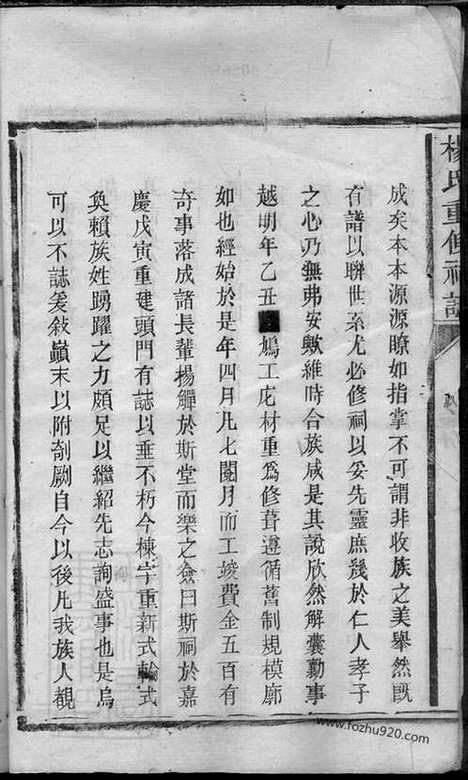 楊氏重修祠譜
成矣本本源源瞭如指掌不可謂非收族之美舉然旣
有譜以聯世系尤必修祠以妥先靈庶幾於仁人孝子
之心乃無弗安歟維時合族咸是其說欣然解囊勤事
越明年乙丑鳩工庀材重爲修葺遵循舊制規模廓
如也經始於是年四月凡七閱月而工竣費金五百有
奇事落成諸長輩揚觶於斯堂而樂之僉曰斯祠於嘉
慶戊寅重建頭門有誌以垂不朽今棟宇重新式輪式
奐賴族姓踴躍之力頗足以繼紹先志詢盛事也是烏
可以不誌爰敘巔末以附剞劂自今以後凡我族人覩
www.fozhu920.com